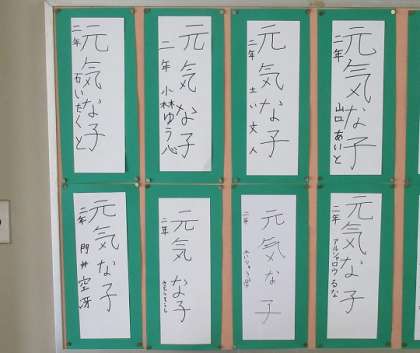 元気な子
二年 石いたくと
元気な子
二年 小林ゆう心
元気な子
二年 土い文人
元気な子
二年 山口あいと
元気な子
二年 門井空冴
元気な子
二年
元気な子
二年
元気な子
二年 アルジャロウるな